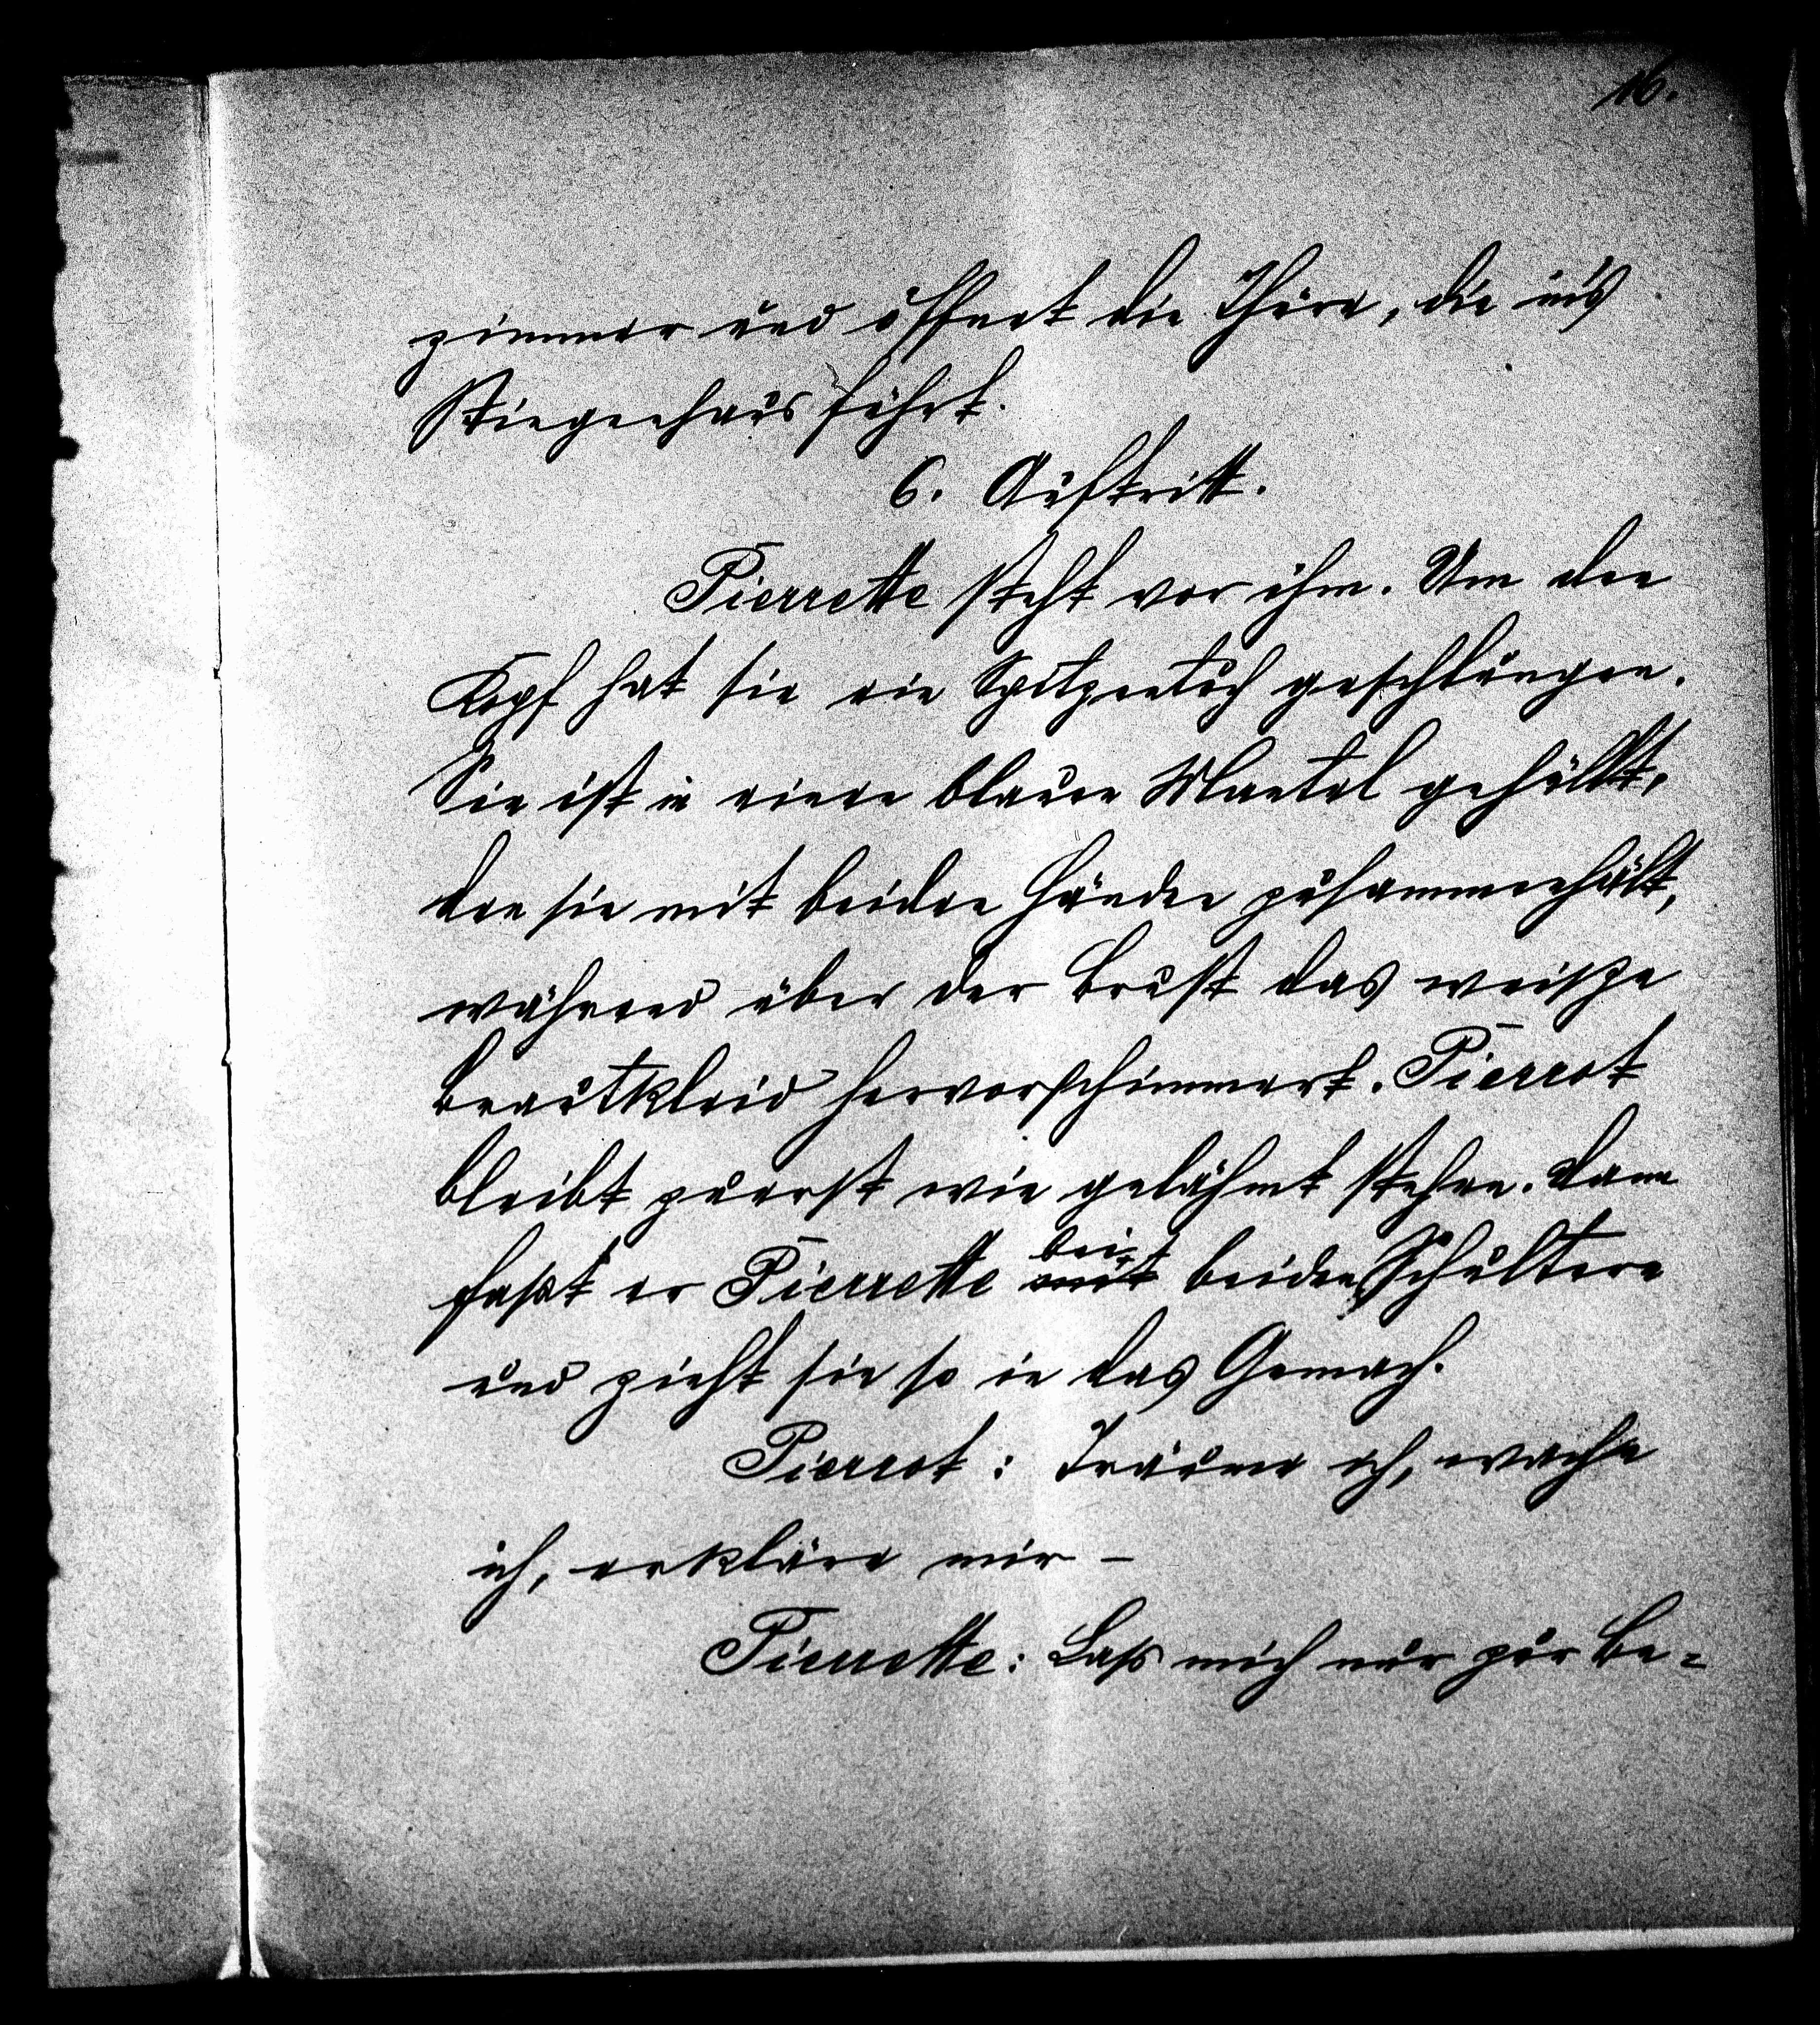 16.
zimmer und öffnet die Thüre, die in's
Stiegenhaus führt.
6. Auftritt.
Pierrette steht vor ihm. Um den
Kopf hat sie ein Spitzentuch geschlungen.
Sie ist in einen blauen Mantel gehüllt,
den sie mit beiden Händen zusammenhält,
während über der Brust das weiße
Brautkleid hervorschimmert. Pierrot
bleibt zuerst wie gelähmt stehen. Dann
bei
faßt er Pierrette mit beiden Schultern
und zieht sie so in das Gemach.
Pierrot: Träume ich, wache
ich, erkläre mir –
Pierrette: Laß mich nur zur Be=